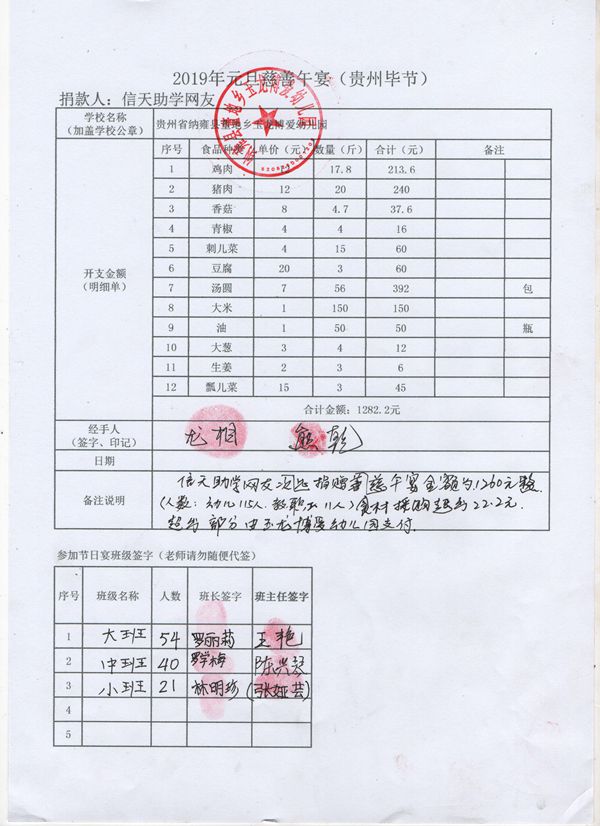 2019年元旦慈善午宴（贵州毕节）
捐款人：信天助学网友
学校名称
（加盖学校公章）
贵州省纳雍县董地乡玉龙博爱幼儿园
开支金额
（明细单）
序号 食品种类 单价（元） 数量（斤） 合计（元） 备注
1 鸡肉 12 17.8 213.6
2 猪肉 12 20 240
3 香菇 8 4.7 37.6
4 青椒 4 4 16
5 刺儿菜 4 15 60
6 豆腐 20 3 60
7 汤圆 7 56 392 包
8 大米 1 150 150
9 油 1 50 50 瓶
10 大葱 3 4 12
11 生姜 2 3 6
12 瓢儿菜 15 3 45
合计金额：1282.2元
经手人
（签字、印记）
龙相 熊乾
日期
备注说明
信天助学网友 捐赠 慈午宴金额为1260元整
（人数：幼儿115人、教职工11人）食材采购超约22.2元.
超约部分由玉龙博爱幼儿园支付.
参加节日宴班级签字（老师请勿随便代签）
序号 班级名称 人数 班长签字 班主任签字
1 大班 54 罗丽莉 王艳
2 中班 40 罗学梅 陈兴琴
3 小班 21 林明珍 （张娅芸）
4
5